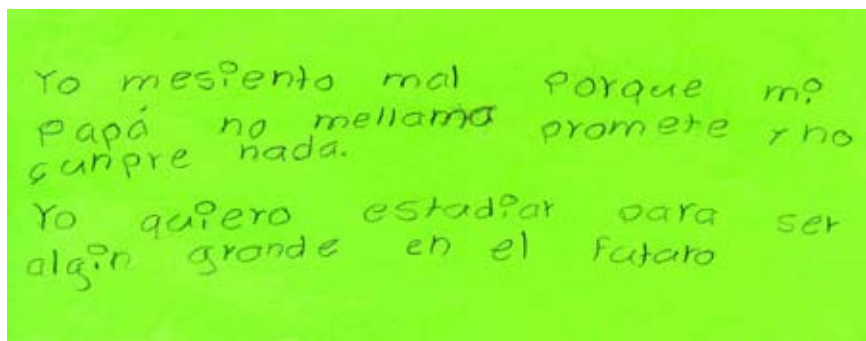 Yo mesiento mal Porque mi
Papá no mellama promete y no
cunpre nada.
Yo quiero estudiar para ser
algin grande en el futuro